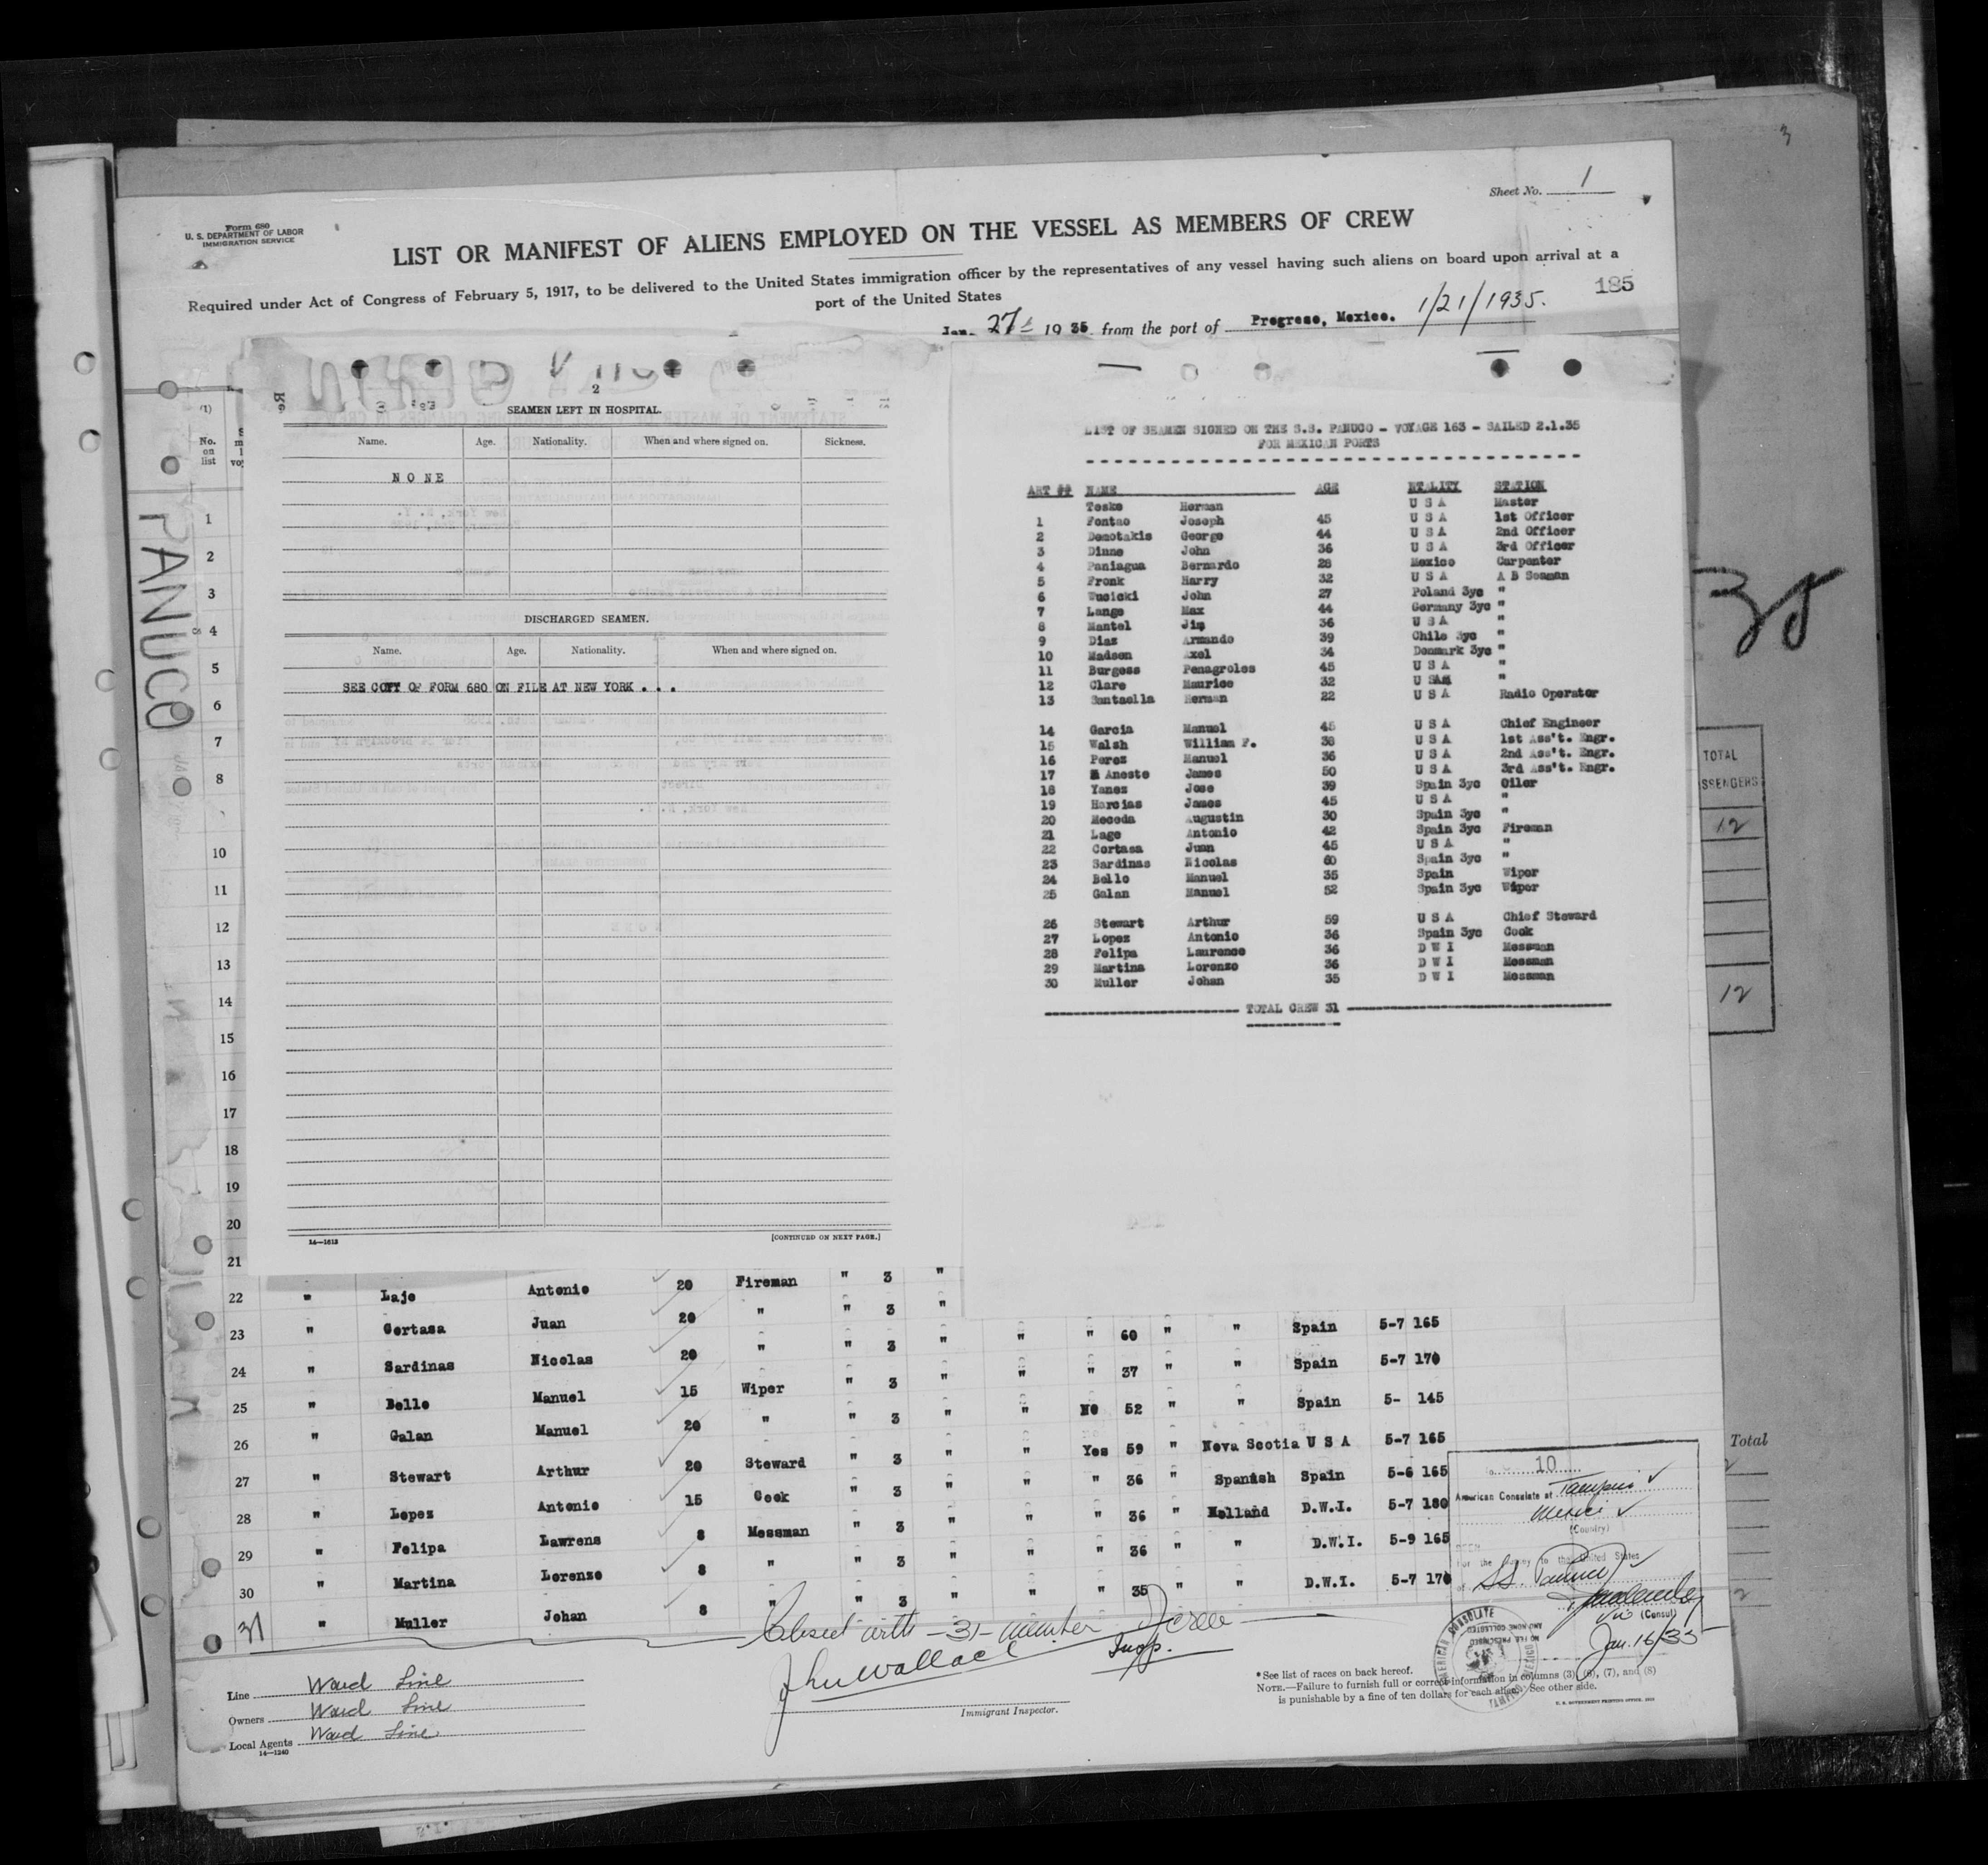 3
Sheet No. 1
Form 680
U. S. DEPARTMENT OF LABOR
IMMIGRATION SERVICE
LIST OR MANIFEST OF ALIENS EMPLOYED ON THE VESSEL AS MEMBERS OF CREW
Required under Act of Congress of February 5, 1917, to be delivered to the United States immigration officer by the representatives of any vessel having such aliens on board upon arrival at a
port of the United States
185
Jan. 27 1935 from the port of Progreso, Mexico. 1/21/1935.
PANUCO
(1)
No.
on
list
2
SEAMEN LEFT IN HOSPITAL.
Name. Age. Nationality. When and where signed on. Sickness.
NONE
DISCHARGED SEAMEN.
Name. Age. Nationality. When and where signed on.
SEE COPY OF FORM 680 ON FILE AT NEW YORK . . .
14—1613
[CONTINUED ON NEXT PAGE.]
LIST OF SEAMEN SIGNED ON THE S.S. PANUCO - VOYAGE 163 - SAILED 2.1.35
FOR MEXICAN PORTS
ART ## NAME AGE NTALITY STATION
Teske Herman U S A Master
1 Fontao Joseph 45 U S A 1st Officer
2 Demotakis George 44 U S A 2nd Officer
3 Dinne John 36 U S A 3rd Officer
4 Paniagua Bernardo 28 Mexico Carpenter
5 Fronk Harry 32 U S A A B Seaman
6 Wucicki John 27 Poland 3yc "
7 Lange Max 44 Germany 3yc "
8 Mantel Jim 36 U S A "
9 Diaz Armando 39 Chile 3yc "
10 Madsen Axel 34 Denmark 3yc "
11 Burgess Penagroles 45 U S A "
12 Clare Maurice 32 U S A "
13 Santaella Herman 22 U S A Radio Operator
14 Garcia Manuel 45 U S A Chief Engineer
15 Walsh William F. 38 U S A 1st Ass't. Engr.
16 Perez Manuel 36 U S A 2nd Ass't. Engr.
17 Aneste James 50 U S A 3rd Ass't. Engr.
18 Yanez Jose 39 Spain 3yc Oiler
19 Harcias James 45 U S A "
20 Meceda Augustin 30 Spain 3yc "
21 Lage Antonio 42 Spain 3yc Fireman
22 Cortasa Juan 45 U S A "
23 Sardinas Nicolas 60 Spain 3yc "
24 Bello Manuel 35 Spain Wiper
25 Galan Manuel 52 Spain 3yc Wiper
26 Stewart Arthur 59 U S A Chief Steward
27 Lopez Antonio 36 Spain 3yc Cook
28 Felipa Laurence 36 D W I Messman
29 Martina Lorenzo 36 D W I Messman
30 Muller Johan 35 D W I Messman
TOTAL CREW 31
38
TOTAL
SSENGERS
12
12
Total
1
2
3
4
5
6
7
8
10
11
12
13
14
15
16
17
18
19
20
21
22 " Laje Antonio 20 Fireman " 3 "
23 " Cortasa Juan 20 " " 3 " " " 60 " " Spain 5-7 165
24 " Sardinas Nicolas 20 " " 3 " " " 37 " " Spain 5-7 170
25 " Bello Manuel 15 Wiper " 3 " " No 52 " " Spain 5- 145
26 " Galan Manuel 20 " " 3 " " Yes 59 " Nova Scotia U S A 5-7 165
27 " Stewart Arthur 20 Steward " 3 " " " 36 " Spanish Spain 5-6 165
28 " Lopez Antonio 15 Cook " 3 " " " 36 " Holland D.W.I. 5-7 180
29 " Felipa Lawrens 8 Messman " 3 " " " 36 " " D.W.I. 5-9 165
30 " Martina Lorenzo 8 " " 3 " " " 35 " " D.W.I. 5-7 170
31 " Muller Johan 8 " " 3
Closed with -31- member Crew
John Wallace Insp.
Immigrant Inspector.
Line Ward Line
Owners Ward Line
Local Agents Ward Line
14—1240
No. 10
American Consulate at Tampico
Mexico
(Country)
SEEN
For the journey to the United States
of S.S. Panuco
Vice (Consul)
Jan. 16/35
AMERICAN CONSULATE
TAMPICO MEXICO
NO FEE PRESCRIBED
AND NONE COLLECTED
*See list of races on back hereof.
NOTE.—Failure to furnish full or correct information in columns (3), (6), (7), and (8)
is punishable by a fine of ten dollars for each alien. See other side.
U. S. GOVERNMENT PRINTING OFFICE